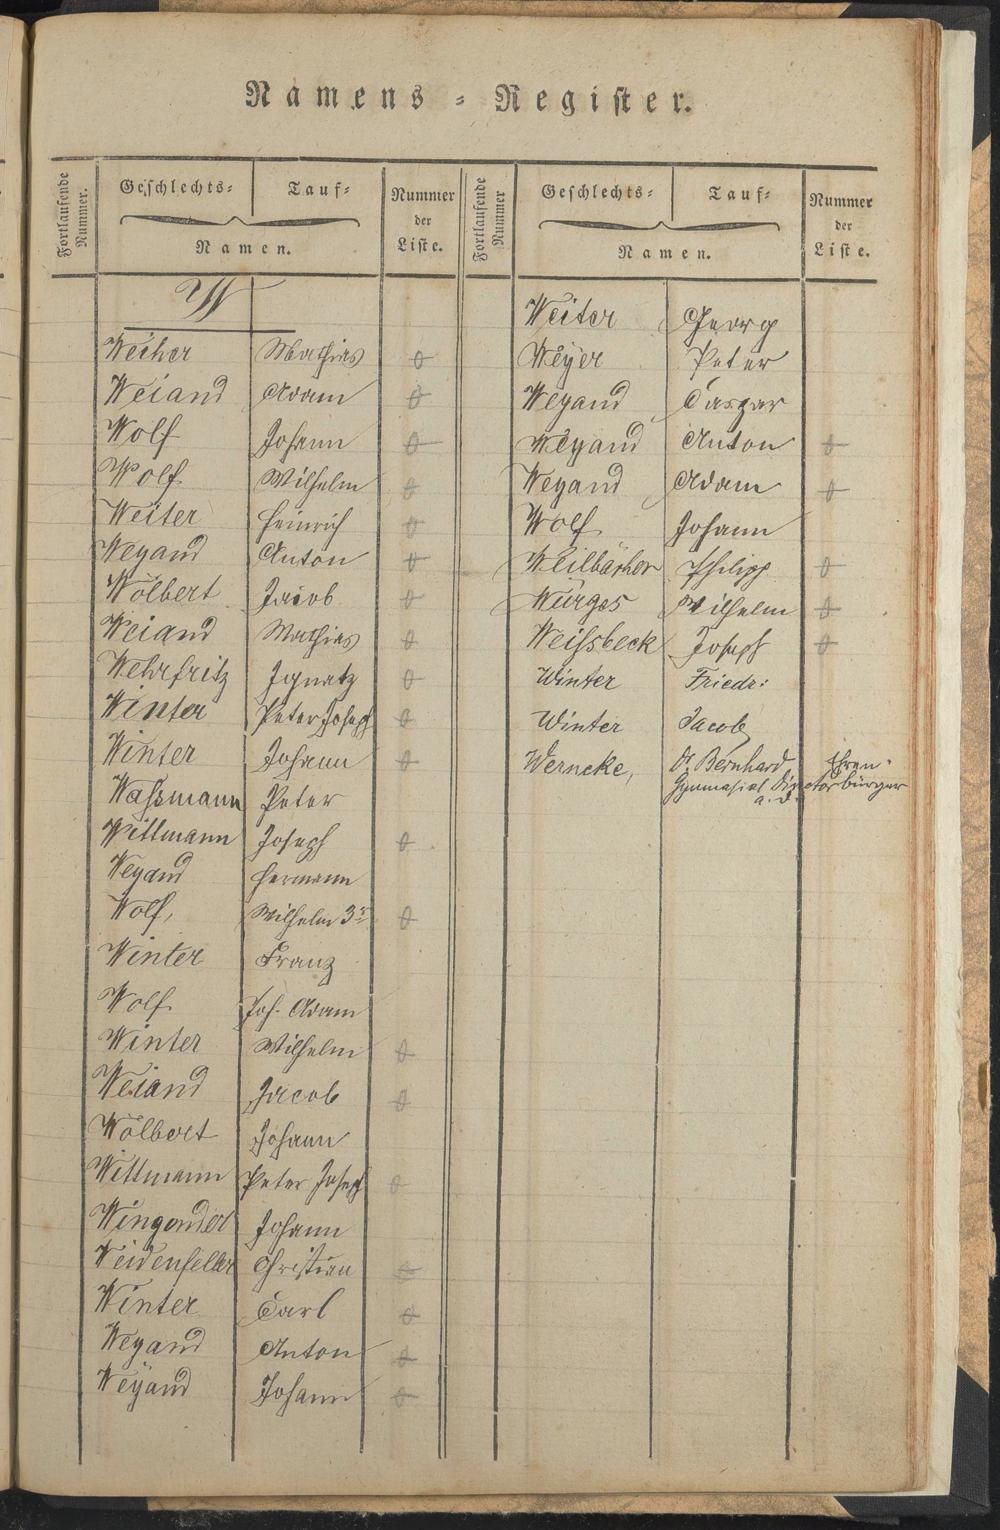 Namens-Register.
Fortlaufende Nummer.
Geschlechts-
Tauf-
Namen.
Nummer der Liste.
Fortlaufende Nummer
Geschlechts-
Tauf-
Namen.
Nummer der Liste.
W
Weiher Mathias
Weiand Adam
Wolf Johann
Wolf Wilhelm
Weiter Heinrich
Weyand Anton
Wölbert Jacob
Weiand Mathias
Wehrfritz Ignatz
Winter Peter Joseph
Winter Johann
Waßmann Peter
Wittmann Joseph
Weyand Hermann
Wolf, Wilhelm 3r
Winter Franz
Wolf Joh. Adam
Winter Wilhelm
Weiand Jacob
Wölbert Johann
Wittmann Peter Joseph
Wingender Johann
Weidenfeller Christian
Winter Carl
Weyand Anton
Weÿand Johann
Weiter Georg
Weÿer Peter
Weyand Caspar
Weyand Anton
Weyand Adam
Wolf Johann
Weilbächer Philipp
Würges Wilhelm
Weißbeck Joseph
Winter Friedr:
Winter Jacob
Werneke, Dr. Bernhard, Ehren-
Gymnasial Director bürger
a. D.